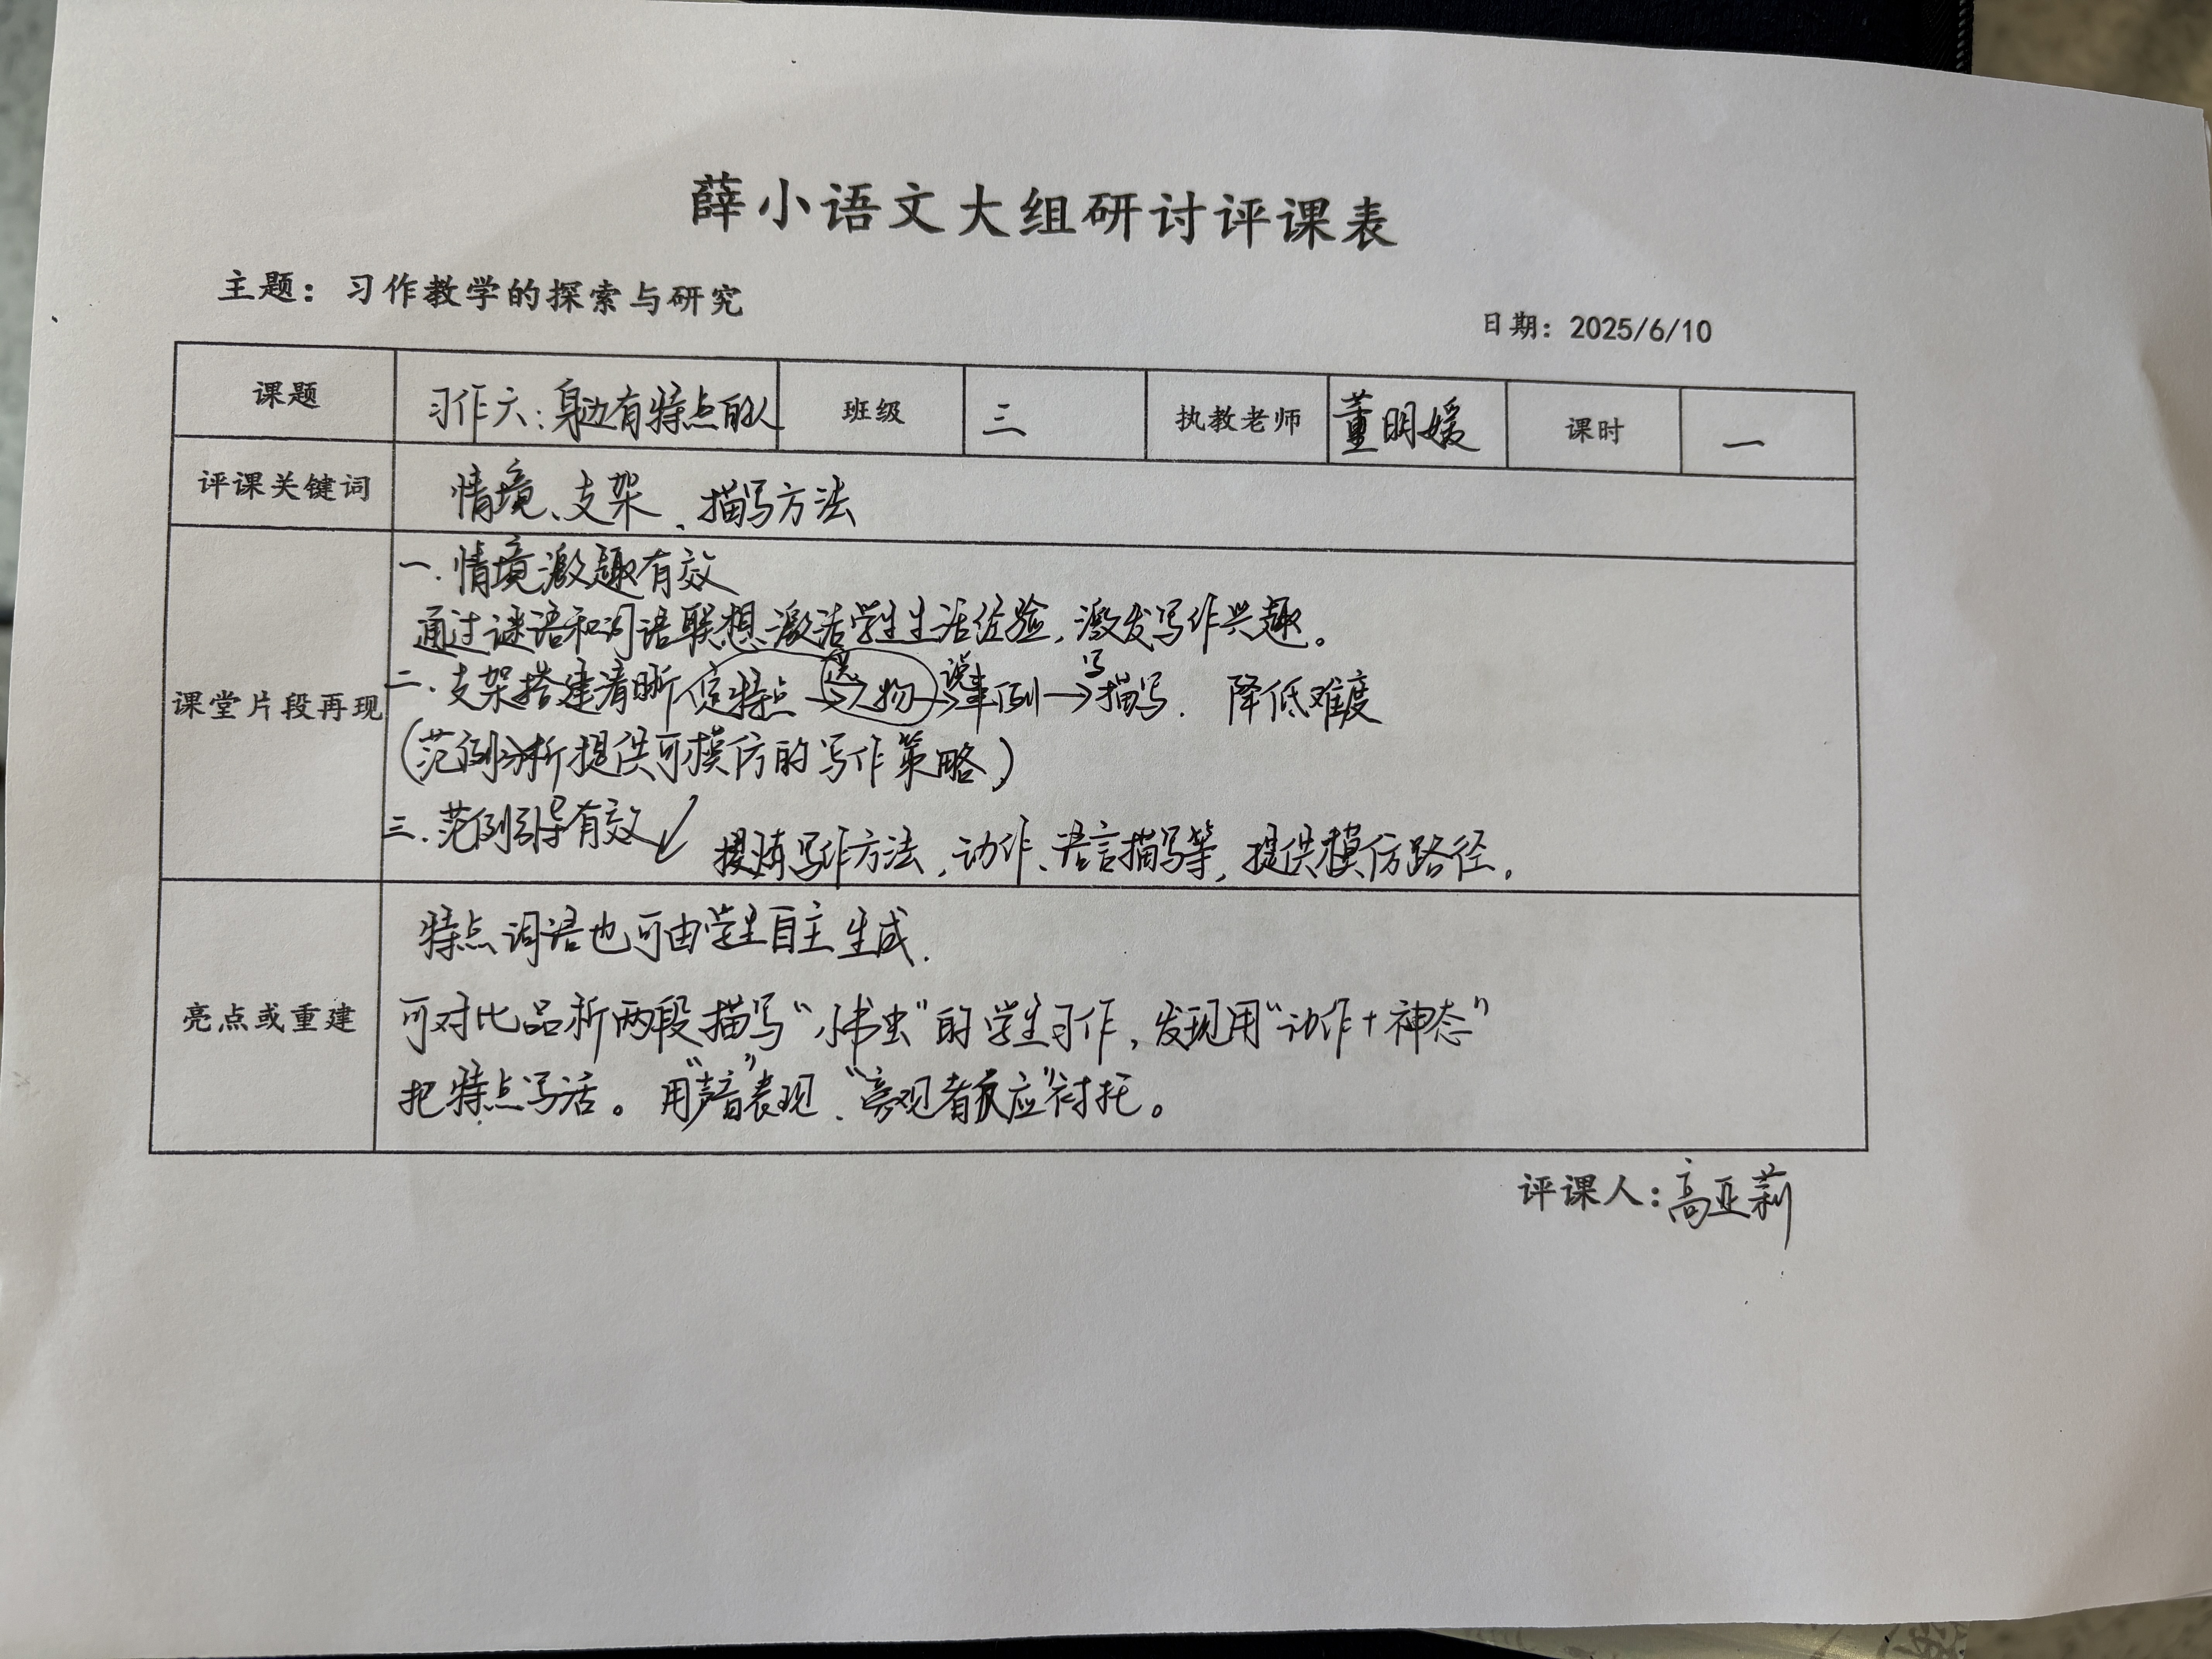 薛小语文大组研讨评课表
主题：习作教学的探索与研究
日期：2025/6/10
课题 习作六：身边有特点的人 班级 三 执教老师 董明媛 课时 一
评课关键词 情境、支架、描写方法
课堂片段再现
一.情境激趣有效
通过谜语和词语联想，激活学生生活经验，激发写作兴趣。
二.支架搭建清晰 定特点→选人物→说事例→写描写. 降低难度
(范例分析提供可模仿的写作策略)
三.范例引导有效 提炼写作方法，动作、语言描写等，提供模仿路径.
亮点或重建
特点词语也可由学生自主生成.
可对比品析两段描写“小书虫”的学生习作，发现用“动作+神态”
把特点写活。用“声音”表现、“旁观者反应”衬托。
评课人：高亚莉